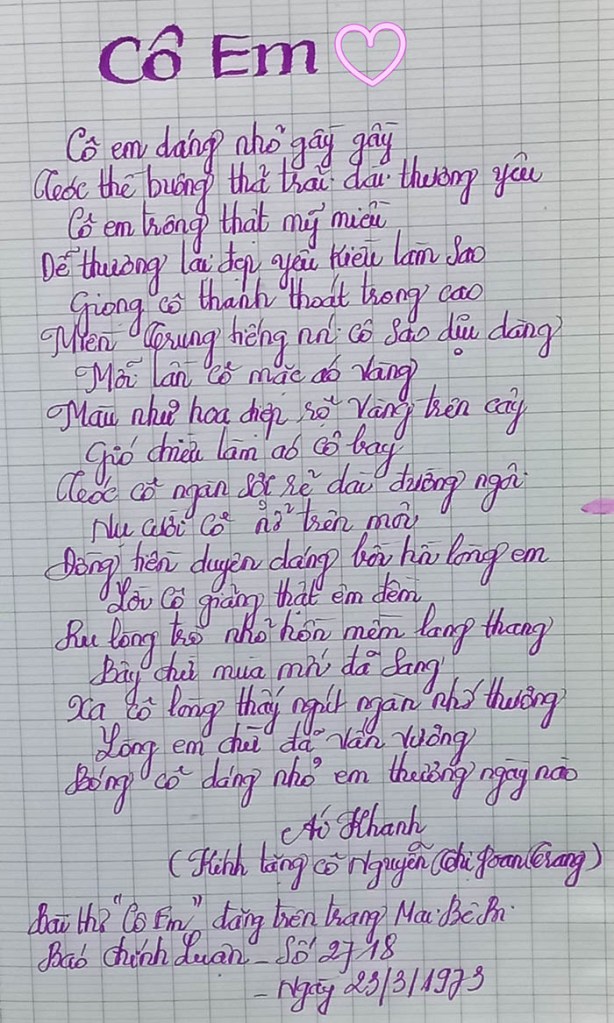 Cô Em
Cô em dáng nhỏ gầy gầy
Tóc thề buông thả trải dài thương yêu
Cô em trông thật mỹ miều
Dễ thương lại đẹp yêu kiều làm sao
Giọng cô thanh thoát trong cao
Miền Trung tiếng nói cô sao dịu dàng
Mỗi lần cô mặc áo vàng
Màu như hoa điệp rổ vàng trên cây
Gió chiều làm áo cô bay
Tóc cô ngăn sóc rẽ dài đường ngôi
Nụ cười cô nở trên môi
Đồng tiền duyên dáng bồi hồi lòng em
Lời cô giảng thật êm đềm
Ru lòng trò nhỏ hồn mềm lang thang
Bây chừ mùa mới đã sang
Xa cô lòng thấy ngút ngàn nhớ thương
Lòng em chừ đã vấn vương
Bóng cô dáng nhỏ em thương ngày nào
Ái Khanh
(Kính tặng cô Nguyễn Thị Đoan Trang)
Bài thơ "Cô Em" đăng trên trang Mai Bê Bi
Báo Chính Luận - Số 2718
- Ngày 23/3/1973